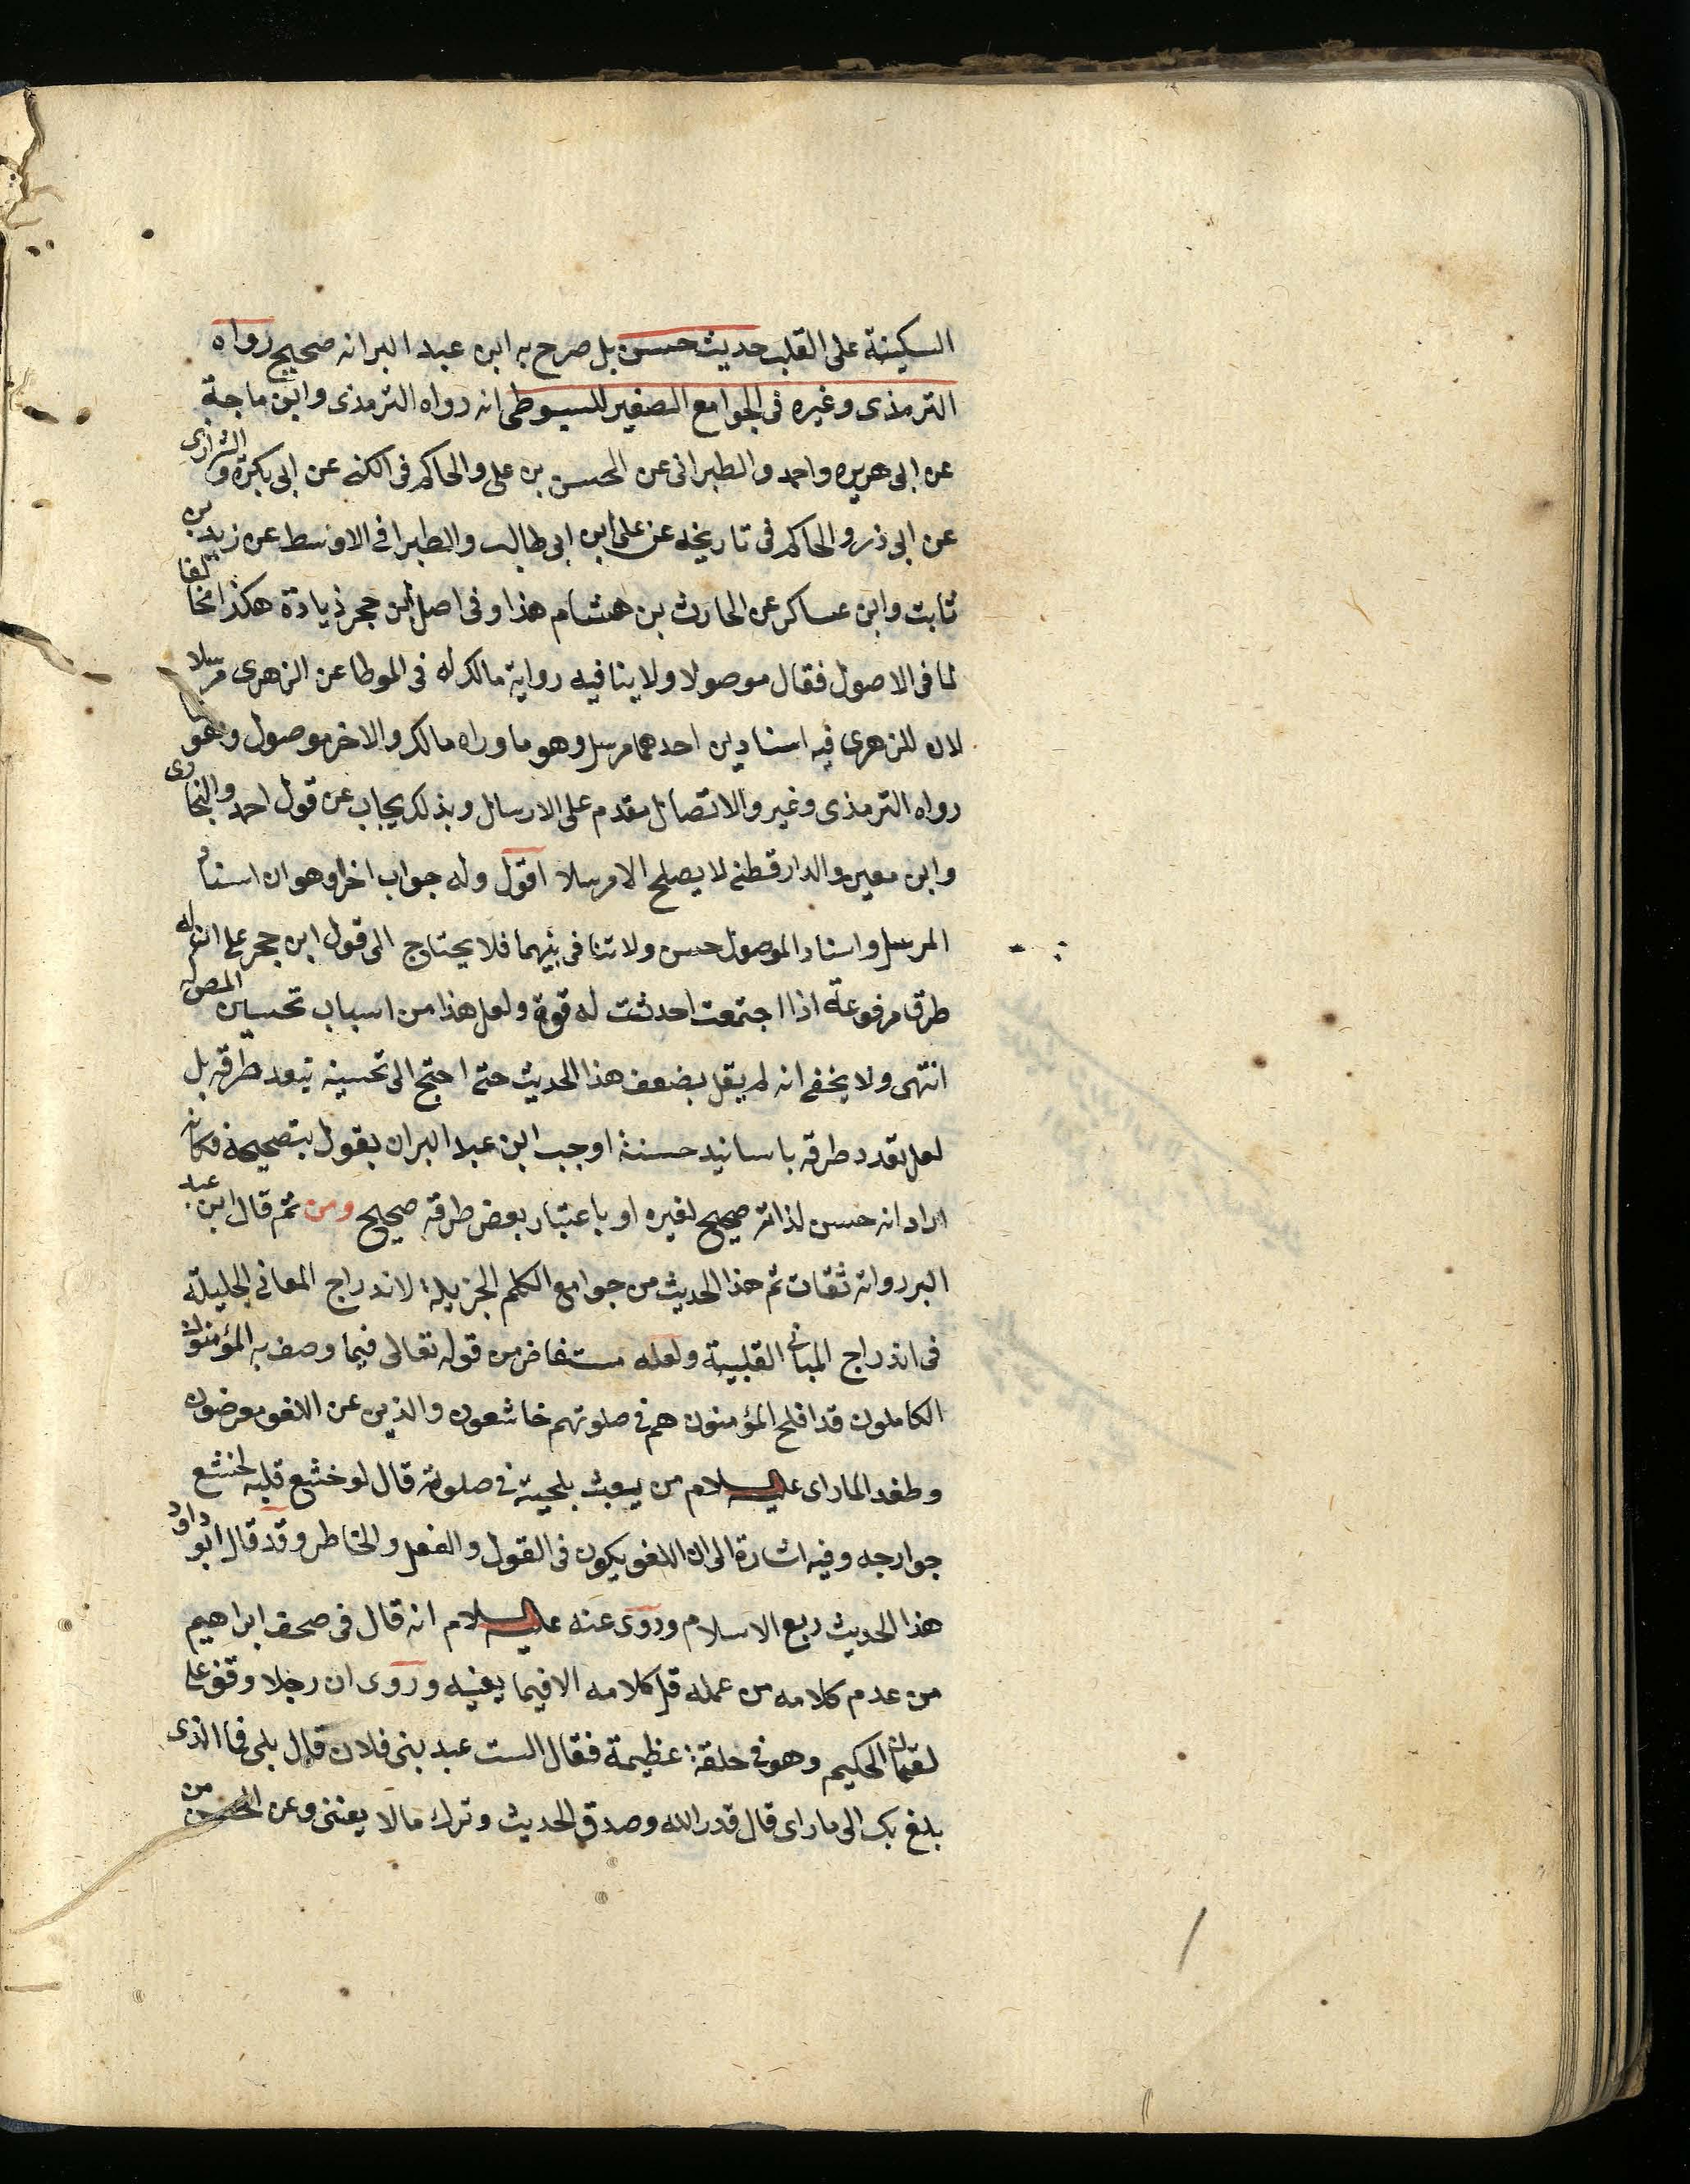 السكينة على القلب حديث حسن بل صرح به ابن عبد البر انه صحيح رواه
الترمذى وغيره فى الجوامع الصغير للسيوطى انه رواه الترمذى وابن ماجة
عن ابى هريره واحمد والطبرانى عن الحسن بن على والحاكم فى الكنى عن ابى بكرة والشرازى
عن ابى ذر والحاكم فى تاريخه عن على ابن ابى طالب والطبرا فى الاوسط عن زيد بن
ثابت وابن عساكر عن الحارث بن هشام هذا وفى اصل ابن حجر زيادة هكذا مخالفا
لما فى الاصول فقال موصولا ولا ينافيه رواية مالك له فى الموطا عن الزهرى مرسلا
لان للزهرى فيه اسنادين احدهما مرسل وهو ما وراه مالك والاخر موصول وهو
رواه الترمذى وغير والاتصال مقدم على الارسال وبذلك يجاب عن قول احمد والبخارى
وابن معين والدارقطنى لا يصلح الا مرسلا اقول وله جواب اخرا وهو ان اسناد
المرسل واسناد الموصول حسن ولا تنافى بينهما فلا يحتاج الى قول ابن حجر على ان له
طرقا مرفوعة اذا اجتمعت احدثت له قوة ولعل هذا من اسباب تحسين المص له
انتهى ولا يخفى انه لم يقل بضعف هذا الحديث حتى احتج الى تحسينه بتعدد طرقه بل
لعل تعدد طرقه باسانيد حسنة اوجب ابن عبد البر ان يقول بتصحيحه فكانه
اراد انه حسن لذاته صحيح لغيره او باعتبار بعض طرقه صحيح ومن ثم قال ابن عبد
البر رواته ثقات ثم هذا الحديث من جوامع الكلم الجزيلة لاندراج المعانى الجليلة
فى اندراج المبانى القلبية ولعله مستفاض من قوله تعالى فيما وصف به المؤمنون
الكاملون قد افلح المؤمنون هم فى صلوتهم خاشعون والذين عن اللغو معرضون
وطغد الماراى عليه السلام من يعبث بلحيته فى صلوته قال لو خشع قلبه لخشع
جوارجه وفيه اشارة الى ان اللغو يكون فى القول والفعل والخاطر وقد قال ابو داود
هذا الحديث ربع الاسلام وروى عنه عليه السلام انه قال فى صحف ابراهيم
من عدم كلامه من عمله قل كلامه الا فيما يعنيه وروى ان رجلا وقف على
لقمان الحكيم وهو فى حلقة عظيمة فقال الست عبد بنى فلان قال بلى فما الذى
بلغ بك الى ما راى قال قدر الله وصدق الحديث وترك مالا يعننى وعن الحسن من